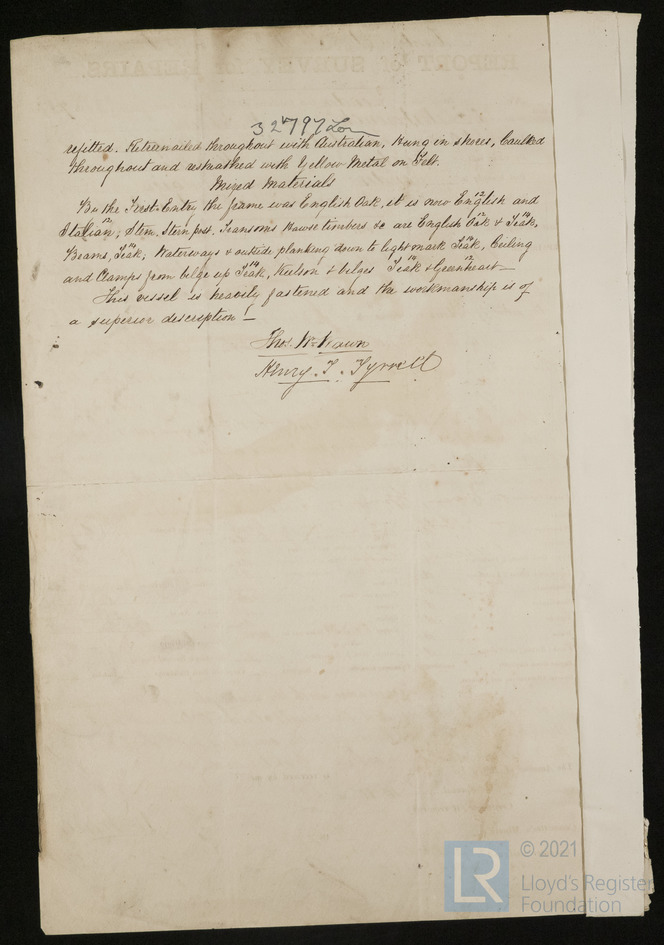 REPORT of SURVEY for REPAIRS.
32797 Lon
refitted. Retreenailed throughout with Australian, Hung in shores, Caulked
throughout and resheathed with Yellow Metal on Felt.
Mixed Materials
By the First Entry the frame was English Oak, it is now English 12 and
Italian 12; Stem, Stern post, Transoms Hawse timbers &c are English Oak 12 & Teak 14,
Beams, Teak 14, Waterways & outside planking down to light mark Teak 14, Ceiling
and Clamps from bilge up Teak 14, Keelson & bilges Teak 14 & Greenheart 12 —
This vessel is heavily fastened and the workmanship is of
a superior description! —
Thos. W.
Henry. T. Tyrrell
© 2021
LR
Lloyd's Register
Foundation